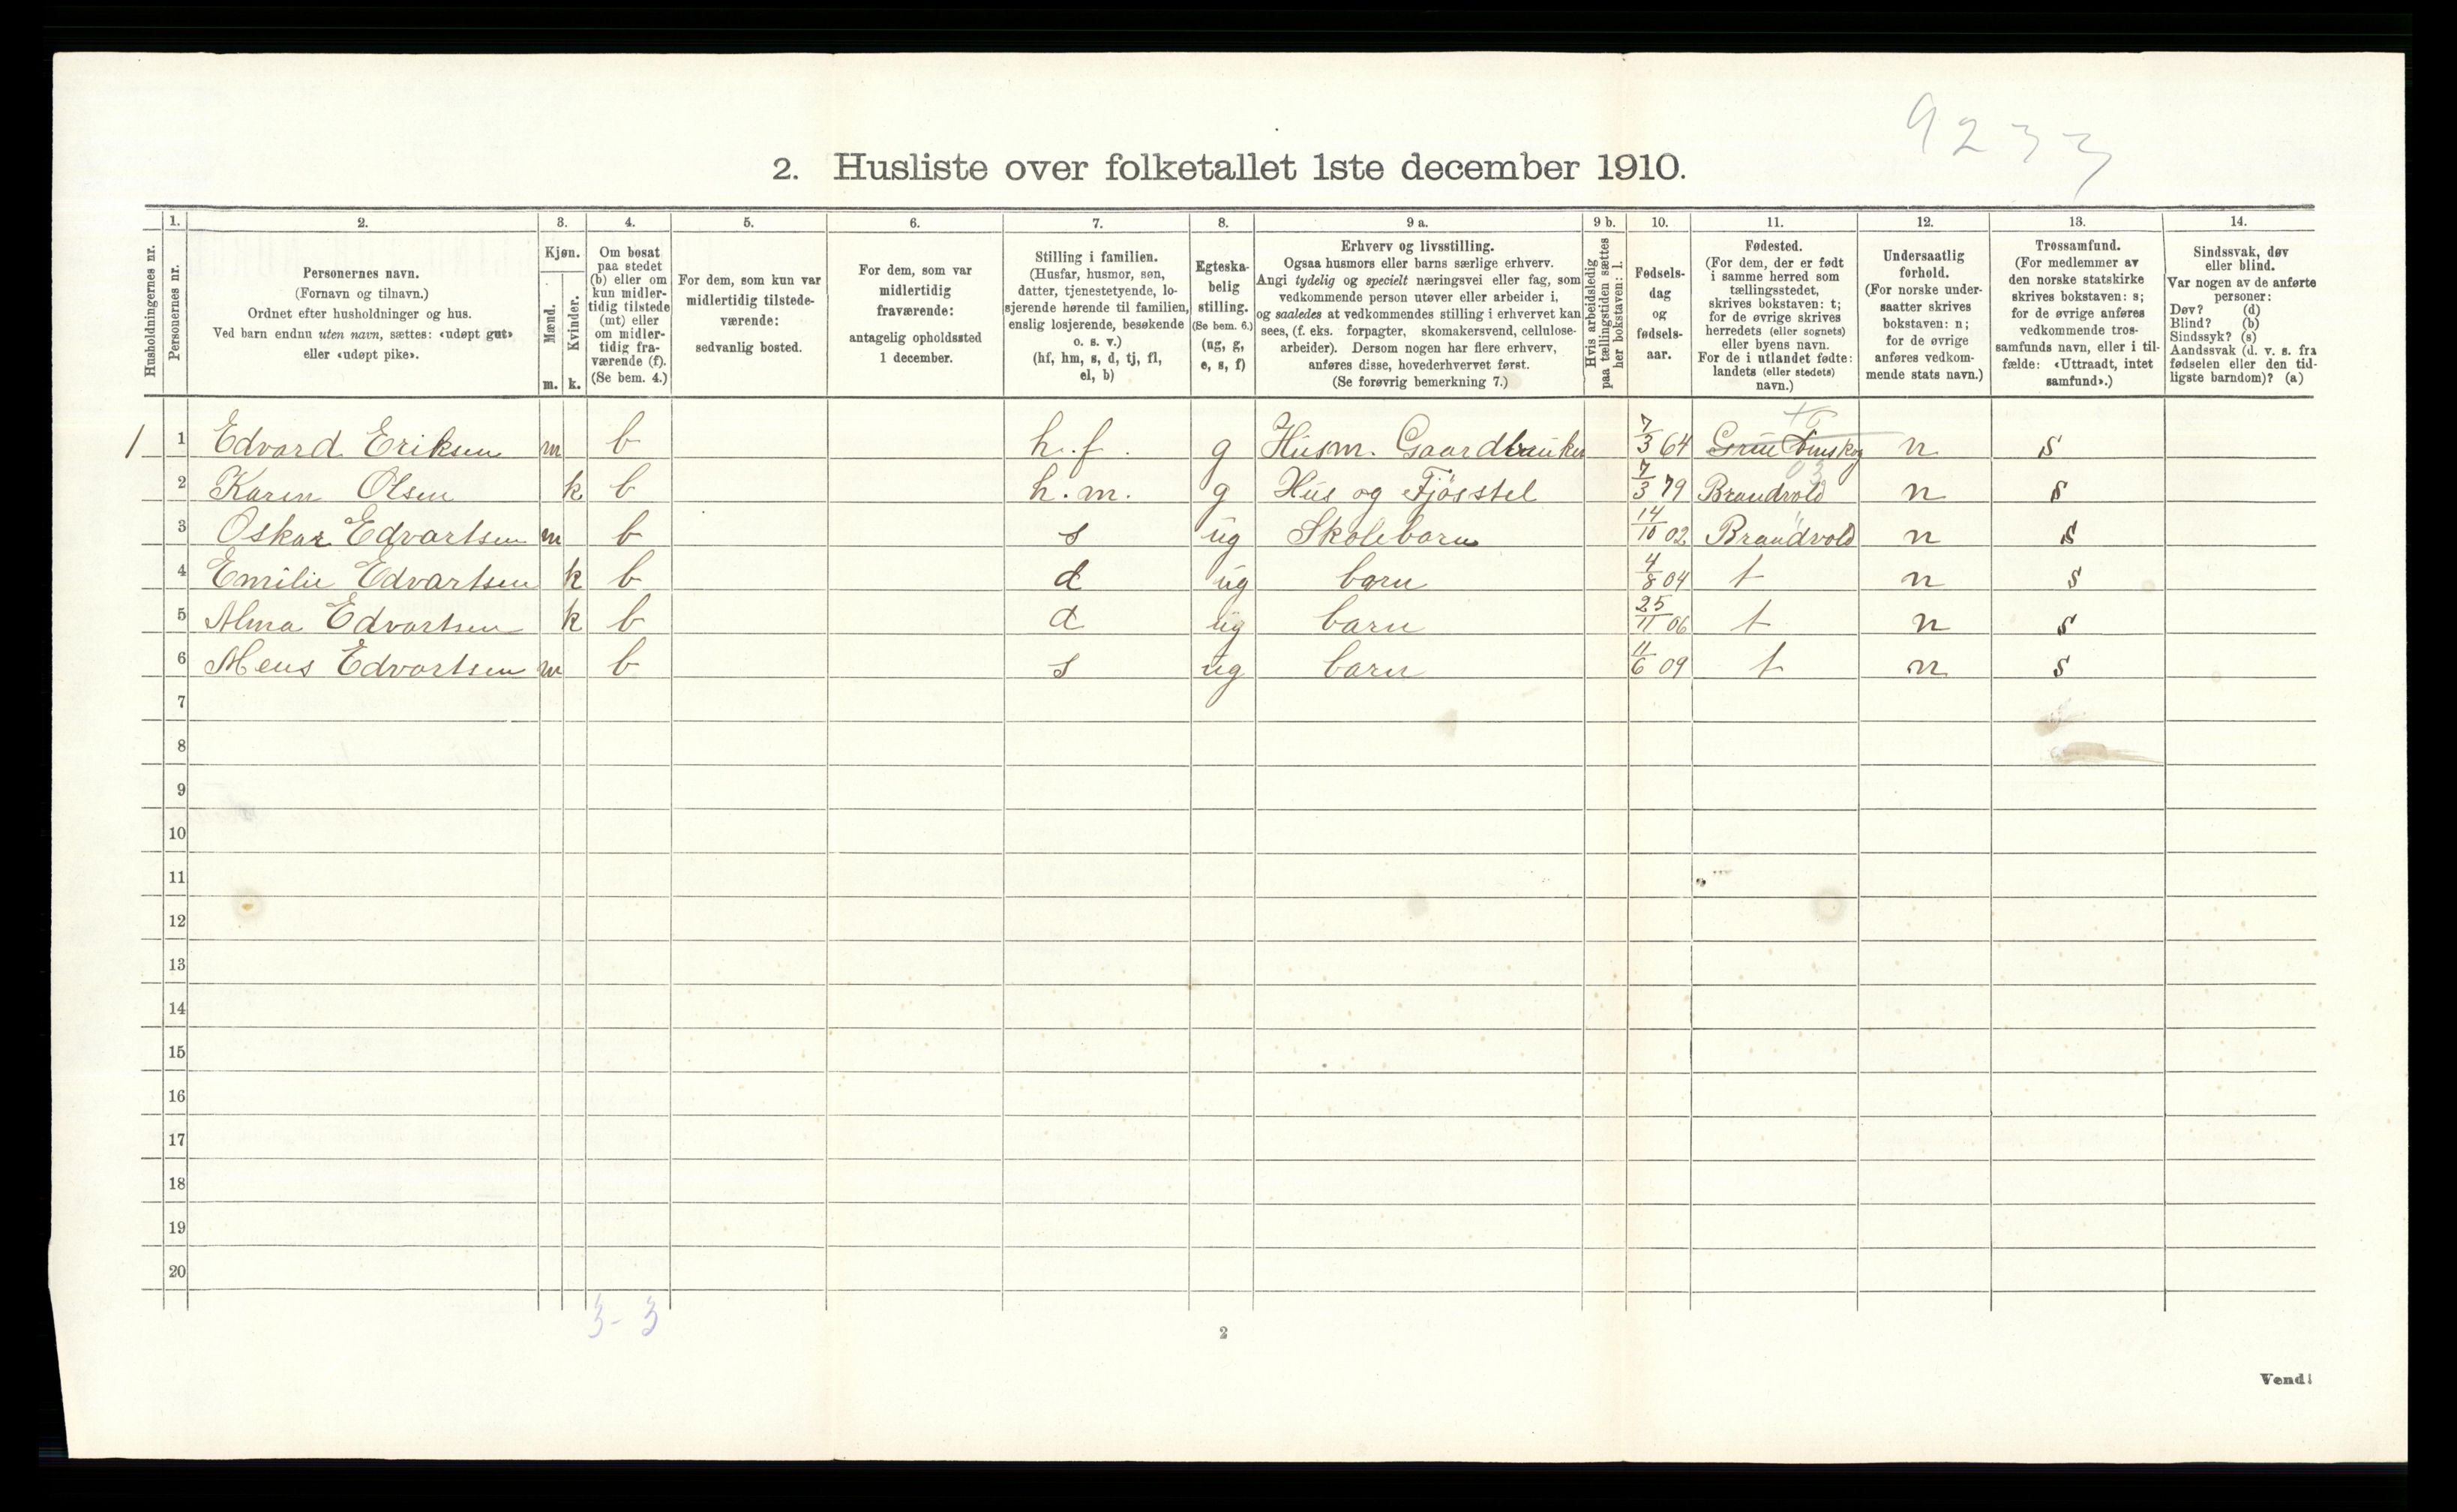 9233
2. Husliste over folketallet 1ste december 1910.
Husholdningernes nr.
1.
Personernes nr.
2.
Personernes navn.
(Fornavn og tilnavn.)
Ordnet efter husholdninger og hus.
Ved barn endnu uten navn, sættes: «udøpt gut»
eller «udøpt pike».
3.
Kjøn.
Mænd.
m.
Kvinder.
k.
4.
Om bosat
paa stedet
(b) eller om
kun midler-
tidig tilstede
(mt) eller
om midler-
tidig fra-
værende (f).
(Se bem. 4.)
5.
For dem, som kun var
midlertidig tilstede-
værende:
sedvanlig bosted.
6.
For dem, som var
midlertidig
fraværende:
antagelig opholdssted
1 december.
7.
Stilling i familien.
(Husfar, husmor, søn,
datter, tjenestetyende, lo-
sjerende hørende til familien,
enslig losjerende, besøkende
o. s. v.)
(hf, hm, s, d, tj, fl,
el, b)
8.
Egteska-
belig
stilling.
(Se bem. 6.)
(ug, g,
e, s, f)
9 a.
Erhverv og livsstilling.
Ogsaa husmors eller barns særlige erhverv.
Angi tydelig og specielt næringsvei eller fag, som
vedkommende person utøver eller arbeider i,
og saaledes at vedkommendes stilling i erhvervet kan
sees, (f. eks. forpagter, skomakersvend, cellulose-
arbeider). Dersom nogen har flere erhverv,
anføres disse, hovederhvervet først.
(Se forøvrig bemerkning 7.)
9 b.
Hvis arbeidsledig
paa tællingstiden sættes
her bokstaven: l.
10.
Fødsels-
dag
og
fødsels-
aar.
11.
Fødested.
(For dem, der er født
i samme herred som
tællingsstedet,
skrives bokstaven: t;
for de øvrige skrives
herredets (eller sognets)
eller byens navn.
For de i utlandet fødte:
landets (eller stedets)
navn.)
12.
Undersaatlig
forhold.
(For norske under-
saatter skrives
bokstaven: n;
for de øvrige
anføres vedkom-
mende stats navn.)
13.
Trossamfund.
(For medlemmer av
den norske statskirke
skrives bokstaven: s;
for de øvrige anføres
vedkommende tros-
samfunds navn, eller i til-
fælde: «Uttraadt, intet
samfund».)
14.
Sindssvak, døv
eller blind.
Var nogen av de anførte
personer:
Døv? (d)
Blind? (b)
Sindssyk? (s)
Aandssvak (d. v. s. fra
fødselen eller den tid-
ligste barndom)? (a)
1 1 Edvard Eriksen m b h.f. g Husm. Gaardbruker 7/3 64 Grue n s
2 Karen Olsen k b h.m. g Hus og Fjösstel 7/3 79 Brandvold n s
3 Oskar Edvartsen m b s ug Skolebarn 14/10 02 Brandvold n s
4 Emilie Edvartsen k b d ug barn 4/8 04 t n s
5 Alma Edvartsen k b d ug barn 25/11 06 t n s
6 Mens Edvartsen m b s ug barn 11/6 09 t n s
7
8
9
10
11
12
13
14
15
16
17
18
19
20
3 - 3
2
Vend!